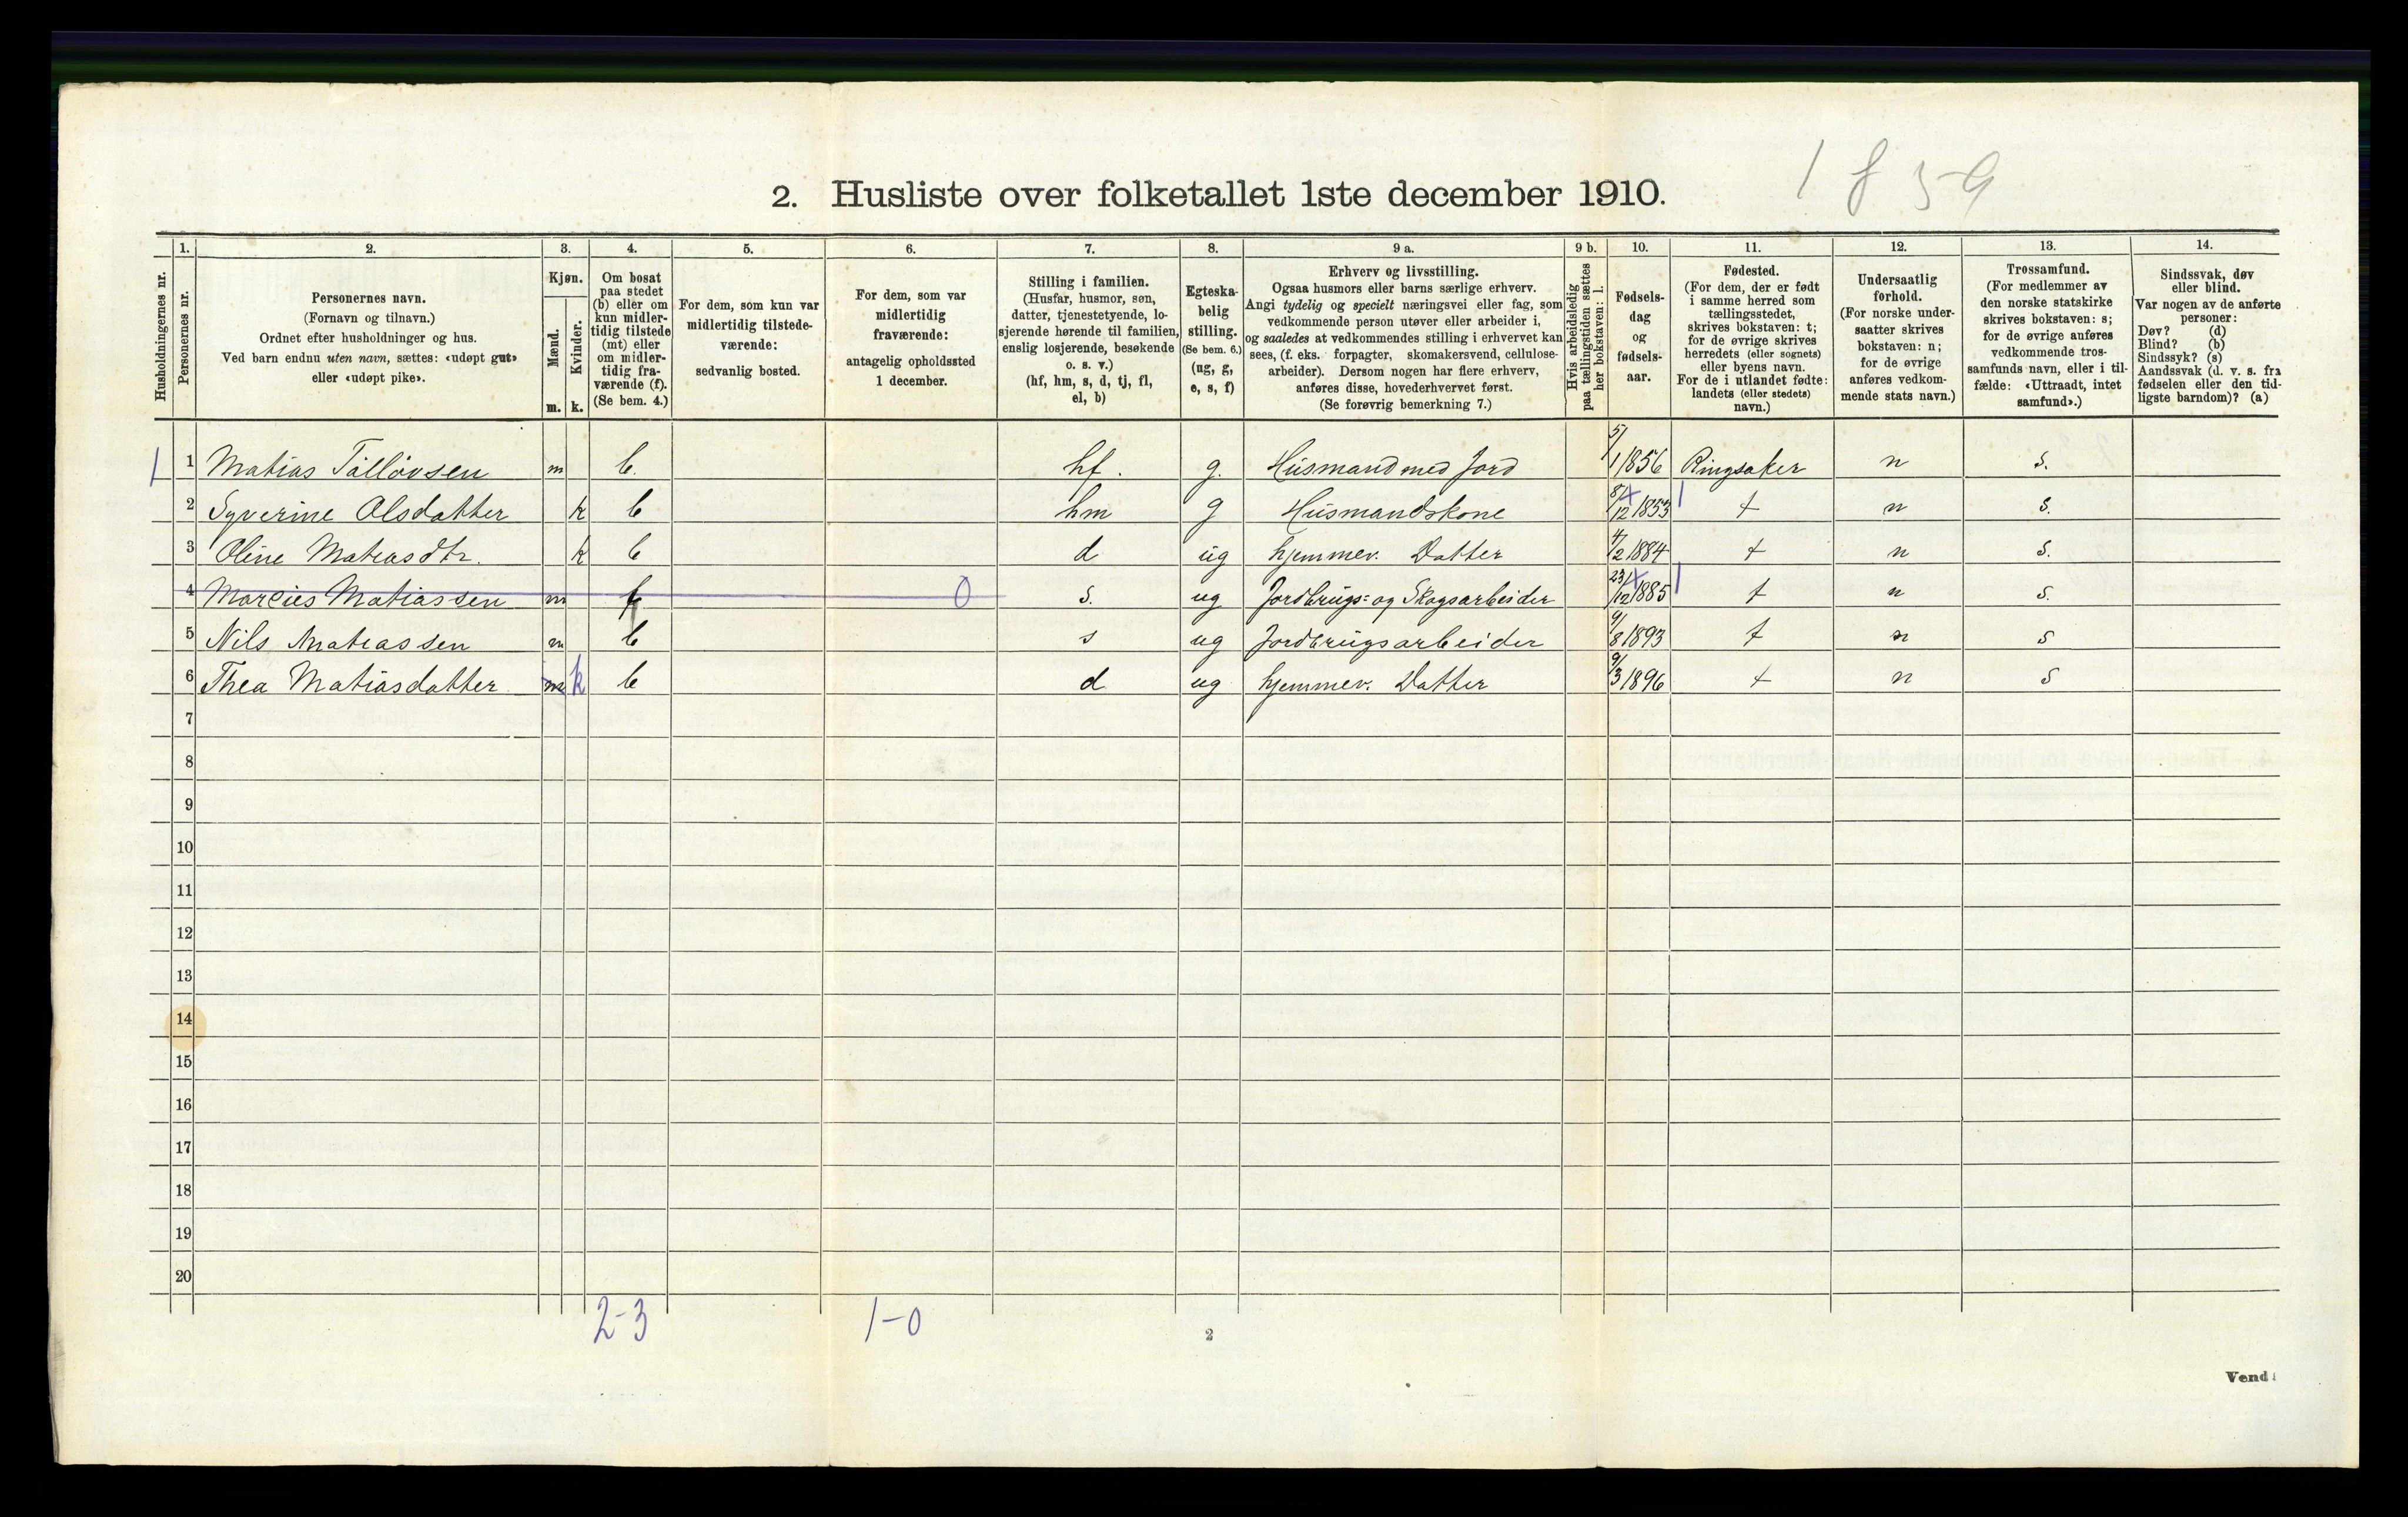 1859
2. Husliste over folketallet 1ste december 1910.
1. 2. 3. 4. 5. 6. 7. 8. 9 a. 9 b. 10. 11. 12. 13. 14.
Husholdningernes nr.
Personernes nr.
Personernes navn.
(Fornavn og tilnavn.)
Ordnet efter husholdninger og hus.
Ved barn endnu uten navn, sættes: «udøpt gut»
eller «udøpt pike».
Kjøn.
Mænd.
Kvinder.
m. k.
Om bosat
paa stedet
(b) eller om
kun midler-
tidig tilstede
(mt) eller
om midler-
tidig fra-
værende (f).
(Se bem. 4.)
For dem, som kun var
midlertidig tilstede-
værende:
sedvanlig bosted.
For dem, som var
midlertidig
fraværende:
antagelig opholdssted
1 december.
Stilling i familien.
(Husfar, husmor, søn,
datter, tjenestetyende, lo-
sjerende hørende til familien,
enslig losjerende, besøkende
o. s. v.)
(hf, hm, s, d, tj, fl,
el, b)
Egteska-
belig
stilling.
(Se bem. 6.)
(ug, g,
e, s, f)
Erhverv og livsstilling.
Ogsaa husmors eller barns særlige erhverv.
Angi tydelig og specielt næringsvei eller fag, som
vedkommende person utøver eller arbeider i,
og saaledes at vedkommendes stilling i erhvervet kan
sees, (f. eks. forpagter, skomakersvend, cellulose-
arbeider). Dersom nogen har flere erhverv,
anføres disse, hovederhvervet først.
(Se forøvrig bemerkning 7.)
Hvis arbeidsledig
paa tællingstiden sættes
her bokstaven: l.
Fødsels-
dag
og
fødsels-
aar.
Fødested.
(For dem, der er født
i samme herred som
tællingsstedet,
skrives bokstaven: t;
for de øvrige skrives
herredets (eller sognets)
eller byens navn.
For de i utlandet fødte:
landets (eller stedets)
navn.)
Undersaatlig
forhold.
(For norske under-
saatter skrives
bokstaven: n;
for de øvrige
anføres vedkom-
mende stats navn.)
Trossamfund.
(For medlemmer av
den norske statskirke
skrives bokstaven: s;
for de øvrige anføres
vedkommende tros-
samfunds navn, eller i til-
fælde: «Uttraadt, intet
samfund».)
Sindssvak, døv
eller blind.
Var nogen av de anførte
personer:
Døv? (d)
Blind? (b)
Sindssyk? (s)
Aandssvak (d. v. s. fra
fødselen eller den tid-
ligste barndom)? (a)
1 1 Matias Tolløvsen m b. hf. g. Husmand med Jord 5/1 1856 Ringsaker n s.
2 Syverine Olsdatter k b hm g Husmandskone 8/12 1853 t n s.
3 Oline Matiasdtr. k b d ug hjemmev. Datter 4/2 1884 t n s.
4 Marcius Matiassen m f 0 s. ug Jordbrugs= og Skogsarbeider 23/12 1885 t n s.
5 Nils Matiassen m b s ug Jordbrugsarbeider 9/8 1893 t n s
6 Thea Matiasdatter m k b d ug hjemmev. Datter 9/3 1896 t n s
7
8
9
10
11
12
13
14
15
16
17
18
19
20
2-3 1-0
2
Vend!